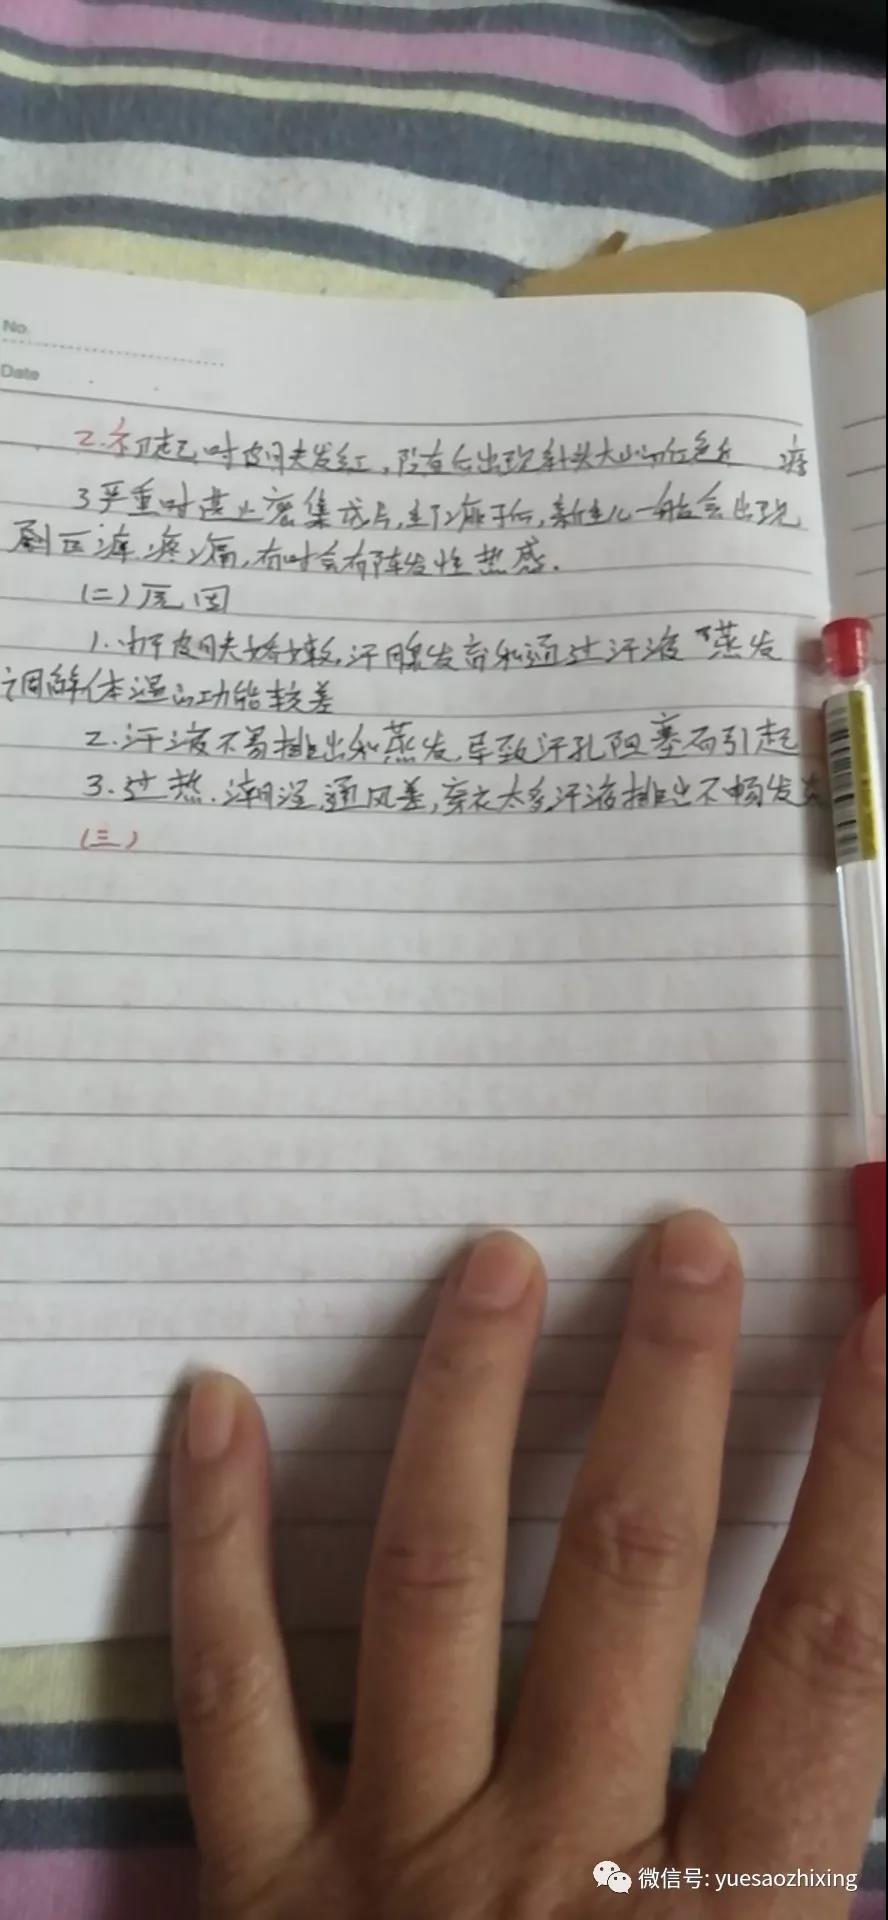 No.
Date
2.初起时皮肤发红,随着后出现针头大小的红色 疹
3严重时甚止密集成片,生了痱子后,新生儿一般会出现
剧区痒.疼痛,有时会有阵发性热感.
(二)原因
1.由于皮肤娇嫩,汗腺发育和通过汗液 蒸发
调解体温的功能较差
2.汗液不易排出和蒸发,导致汗孔阻塞而引起
3.过热.潮湿,通风差,穿衣太多,汗液排出不畅发
(三)
微信号: yuesaozhixing